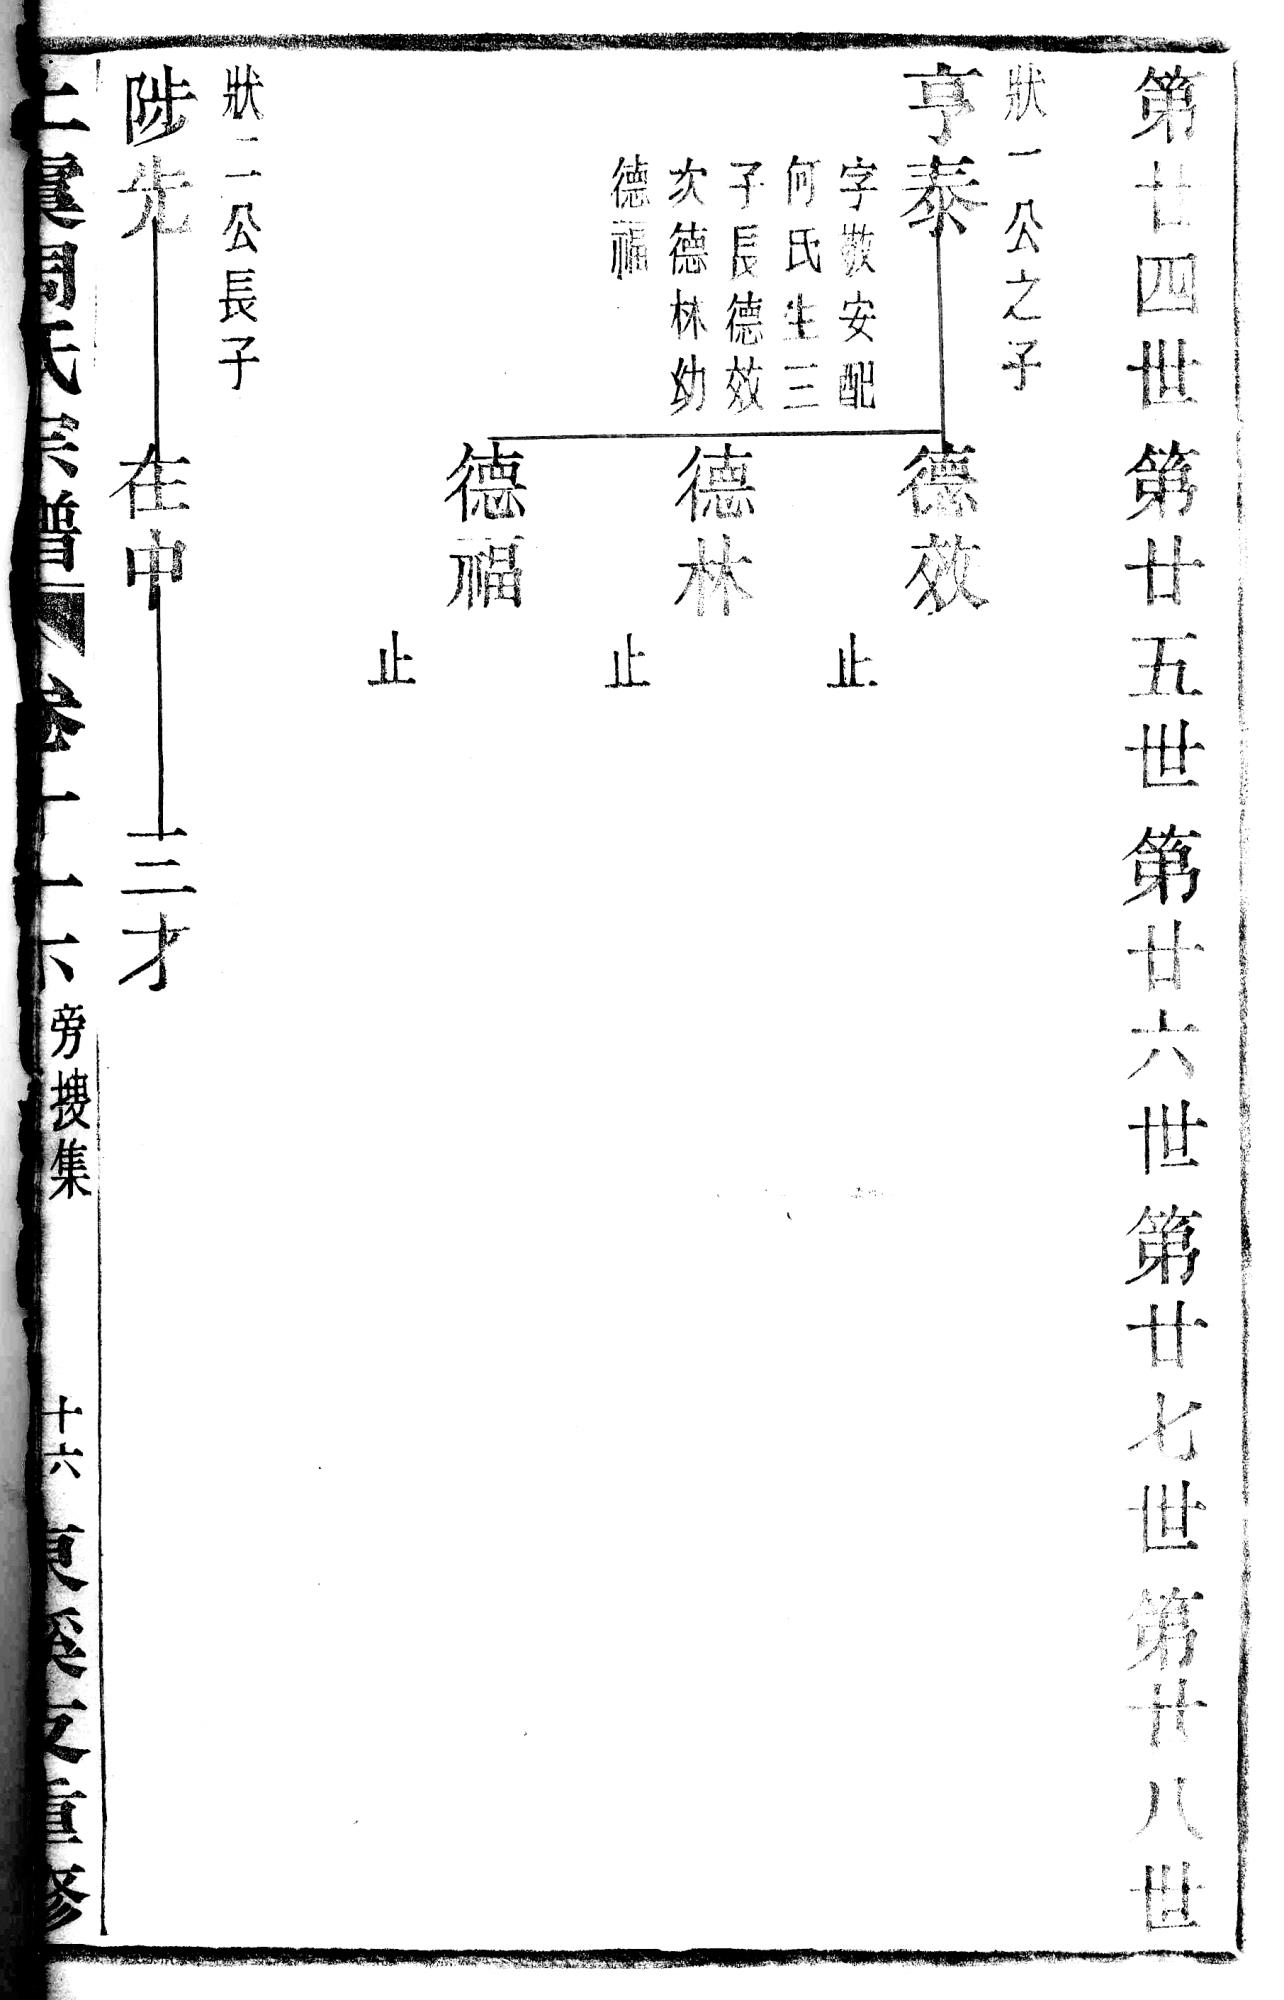 第廿四世 第廿五世 第廿六世 第廿七世 第廿八世
狀一公之子
亨泰
字敬安配
何氏生三
子長德效
次德林幼
德福
德效
止
德林
止
德福
止
狀二公長子
陟先 在中 三才
上虞周氏宗譜 卷十六 旁搜集 十六 重修